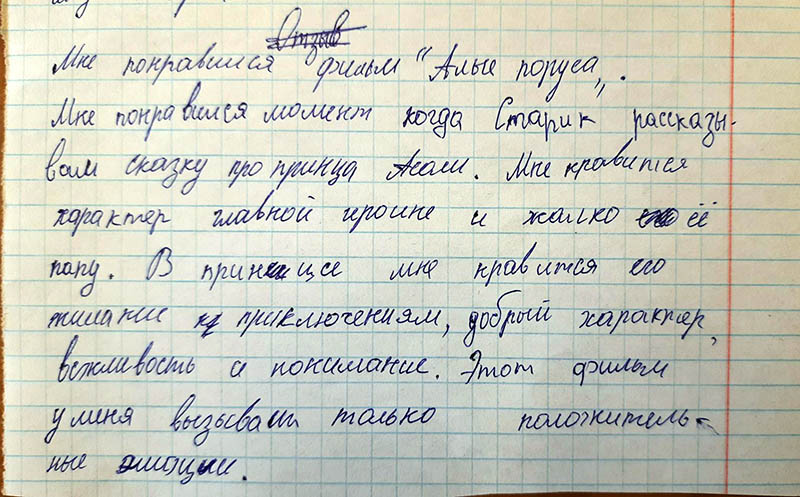 Отзыв
Мне понравился фильм "Алые поруса„.
Мне понравился момент когда Старик рассказы-
вал сказку про принца Асоли. Мне нравится
характер главной героине и жалко её
папу. В принце мне нравится его
желание к приключениям, добрый характер,
вежливость и понимание. Этот фильм
у меня вызывал только положитель-
ные эмоции.